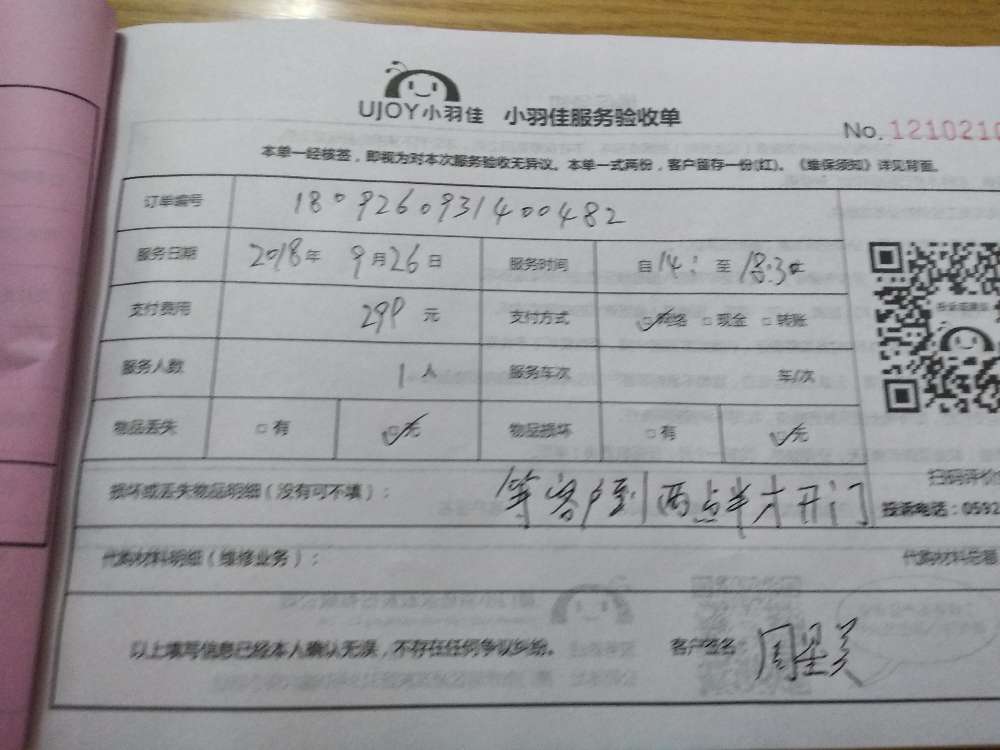 UJOY小羽佳 小羽佳服务验收单
No. 1210210
本单一经核签，即视为对本次服务验收无异议。本单一式两份，客户留存一份(红)。《维保须知》详见背面。
订单编号 180926093140048２
服务日期 2018年 9月26日 服务时间 自14: 至18:30
支付费用 299 元 支付方式 ☑网络 □现金 □转账
服务人数 1人 服务车次 车/次
物品丢失 □有 ☑无 物品损坏 □有 ☑无
扫码评价
损坏或丢失物品明细（没有可不填）： 等客户到两点半才开门
投诉电话：0592
代购材料明细（维修业务）： 代购材料总额
以上填写信息已经本人确认无误，不存在任何争议纠纷。 客户签名：周星美